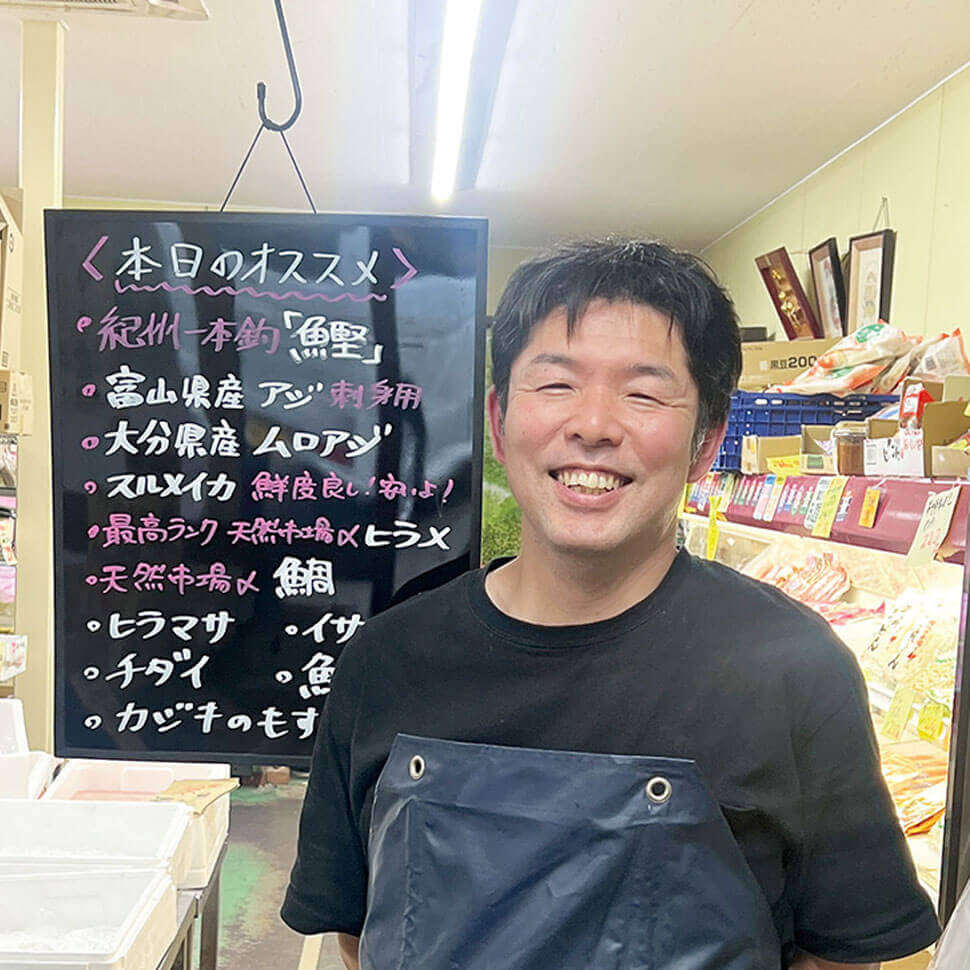 〈本日のオススメ〉
紀州一本釣「鰹」
富山県産 アジ 刺身用
大分県産 ムロアジ
スルメイカ 鮮度良し!安いよ!
最高ランク 天然市場〆 ヒラメ
天然市場〆 鯛
ヒラマサ ・イサ
チダイ
カジキのもす
黒豆200